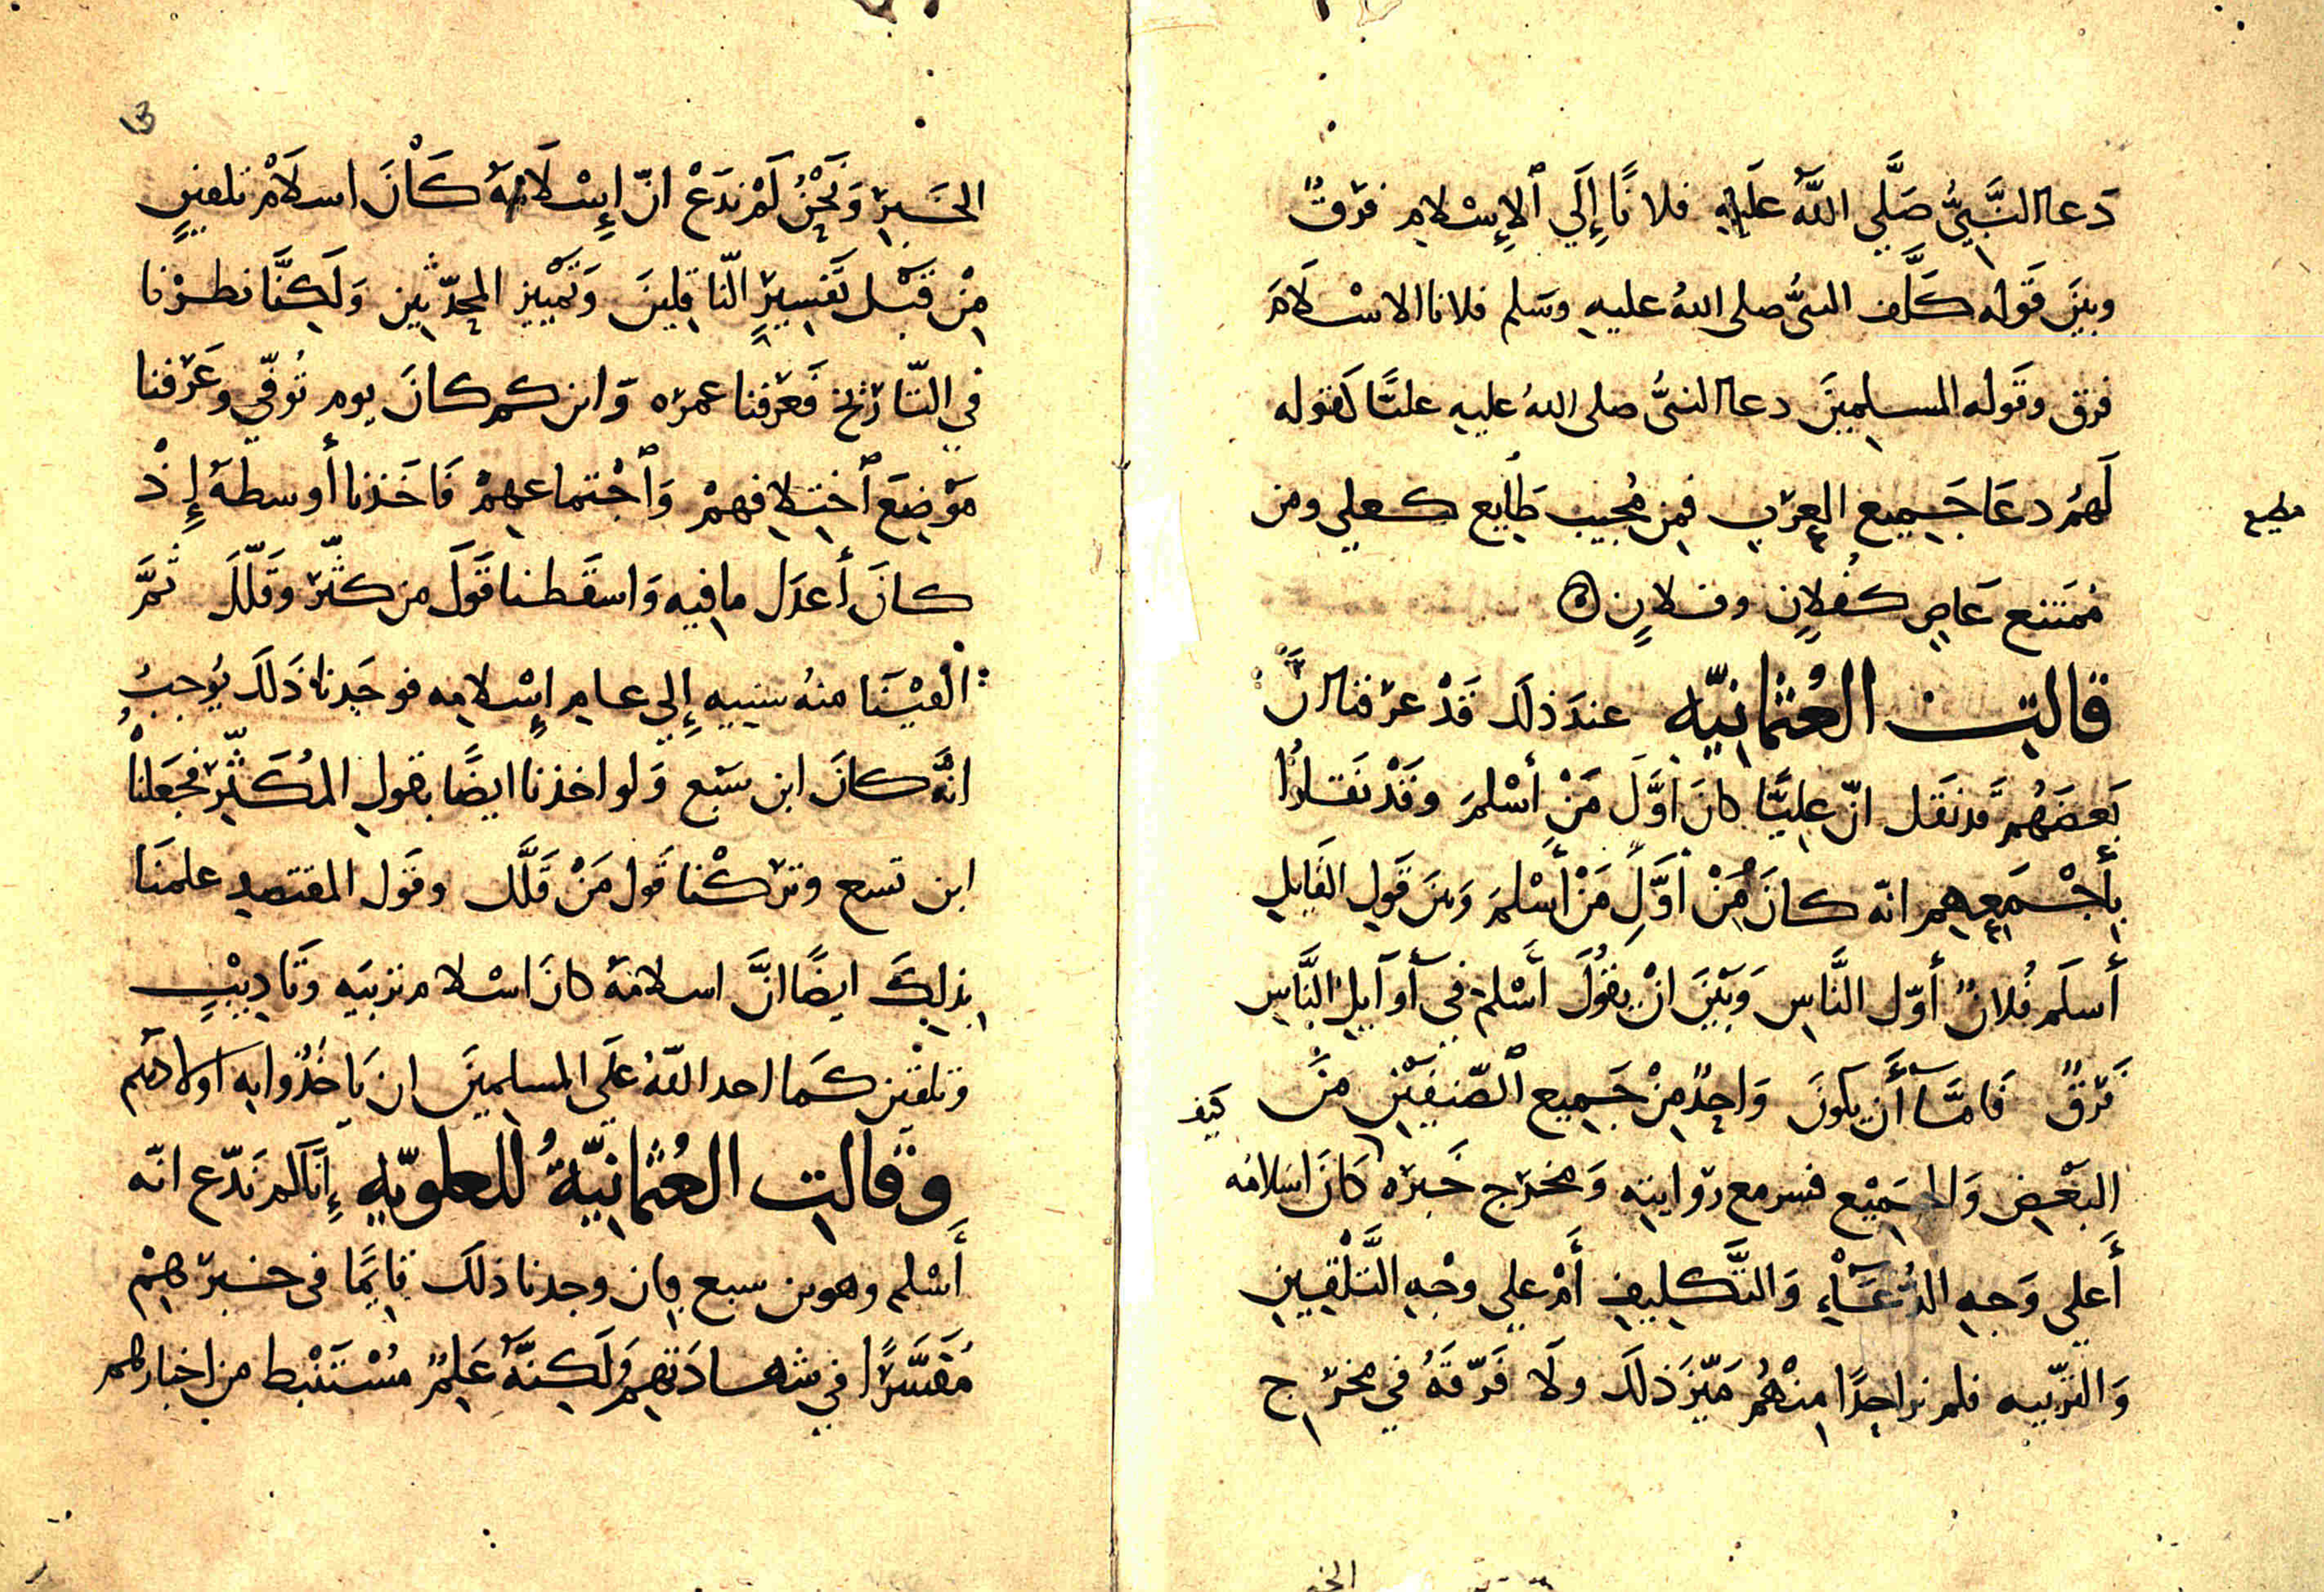 دَعا النَّبِيُّ صَلَّي اللهُ عَلَيْهِ فلانًا إِلَي ٱلإِسْلامِ فرقٌ
وبينَ قَوله كَلَّف النبىُّ صلى اللهُ عليهِ وسَلم فلانا الاسْلَامَ
فرق وقَوله المسلِمِينَ دعا النبىُّ صلى اللهُ عليهِ عليًّا كقوله
لَهمُ دعَا جَمِيع العرَبِ فمِن مُجيب طَايع كعلِي ومن
مطيع
مُمَتنع عَاصٍ كفُلانٍ وفلانٍ
قالتِ العُثمانِيّه عندَ ذلكَ قَدْ عرَفنا انَّ
بَعضَهُم قد نَقَل انّ علِيًّا كانَ أوَّلَ مَنْ أسْلمَ وقَدْ نقلوُا
بِأَجْمَعِهِم انّه كانَ مِنْ أوَّلِ مَنْ أسْلمَ وبينَ قَولِ القَايلِ
أَسلَم فُلانٌ أوّل النَّاسِ وَبَيْنَ انْ يقُولَ أَسْلمَ فِي أَوَايلِ النَّاسِ
فَرْقٌ فَامَّا أَن يكونَ وَاحِدٌ مِنْ جَمِيع ٱلصّنِفَيْنِ مَيَّز
كيف
البَعْضِ وَالجمَيْع فسر مع رِوايتِهِ وَمخرَج خَبرَه كَانَ اسْلامُه
أَعلي وَجهِ الدُّعَآءِ وَالتَّكلِيفِ أَمْ علي وجْهِ التَّلْقِينِ
وَالتربِيه فلم نرَ احِدًا مِنهُم مَيّزَ ذلكَ ولَا فَرّقَهُ فِي مخرَج
الخبر
الخَبرِ وَنَحْنُ لَمْ ندَعْ انّ إِسْلَامَهُ كَانَ اسلَامَ تلقينٍ
مِنْ قَبْل تَفسِيرِ النّاقلِينَ وَتمْييز المحِدّثين وَلَكِنَّا نظرْنا
فِي التّارِيخ فَعرَفنا عمرَه وَابن كم كانَ يوم تُوفّي وعَرَفنا
مَوْضِعَ ٱختِلافِهمْ وَٱجْتماعِهِمْ فَاخَذنا أوسطَهُ إِذْ
كانَ أعدَل ما فِيهِ وَاسقَطنا قَولَ من كثّرَ وقَلّلَ ثمَّ
الْقيْنَا منهُ سِنِيهِ إِلي عامِ إِسْلامِه فوجَدنا ذَلكَ يُوجبُ
انَّهُ كانَ ابن سَبع وَلو اخذنا ايضًا بِقولِ المُكَثِّرِ فجَعلناهُ
ابن تسع وترَكْنا قَول مَنْ قَلَّل وقَول المقتصِدِ علمنَا
بِذلِكَ ايضًا انَّ اسلامَهُ كانَ اسْلام تربيَه وتَادِيبٍ
وتلقين كَما اخذ اللهُ علَي المسلِمينَ ان يَاخُذُوا بِه اولادَهم
وقَالتِ العُثمانِيّةُ للعلويّه إِنّا لم نَدّع انّه
أَسْلم وهو بن سبع فان وجدنا ذلكَ قايِمًا فى خبرَهِمْ
مُفَسَّرًا فِي شهادَتِهم وَلَكِنَّهُ عَلِمٌ مُسْتَنْبط من اخبارهم